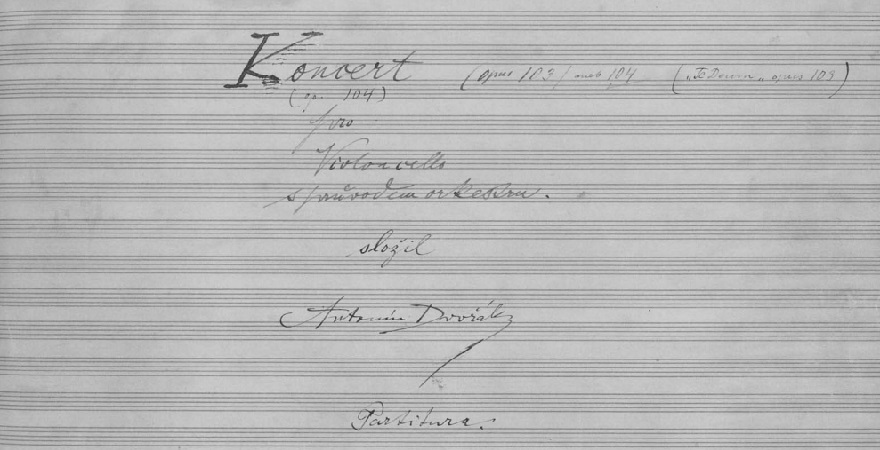 Koncert (opus 103/ aneb 104 („Te Deum„ opus 103)
(op. 104)
pro
Violoncello
s průvodem orkestru.
složil
Antonín Dvořák
Partitura.